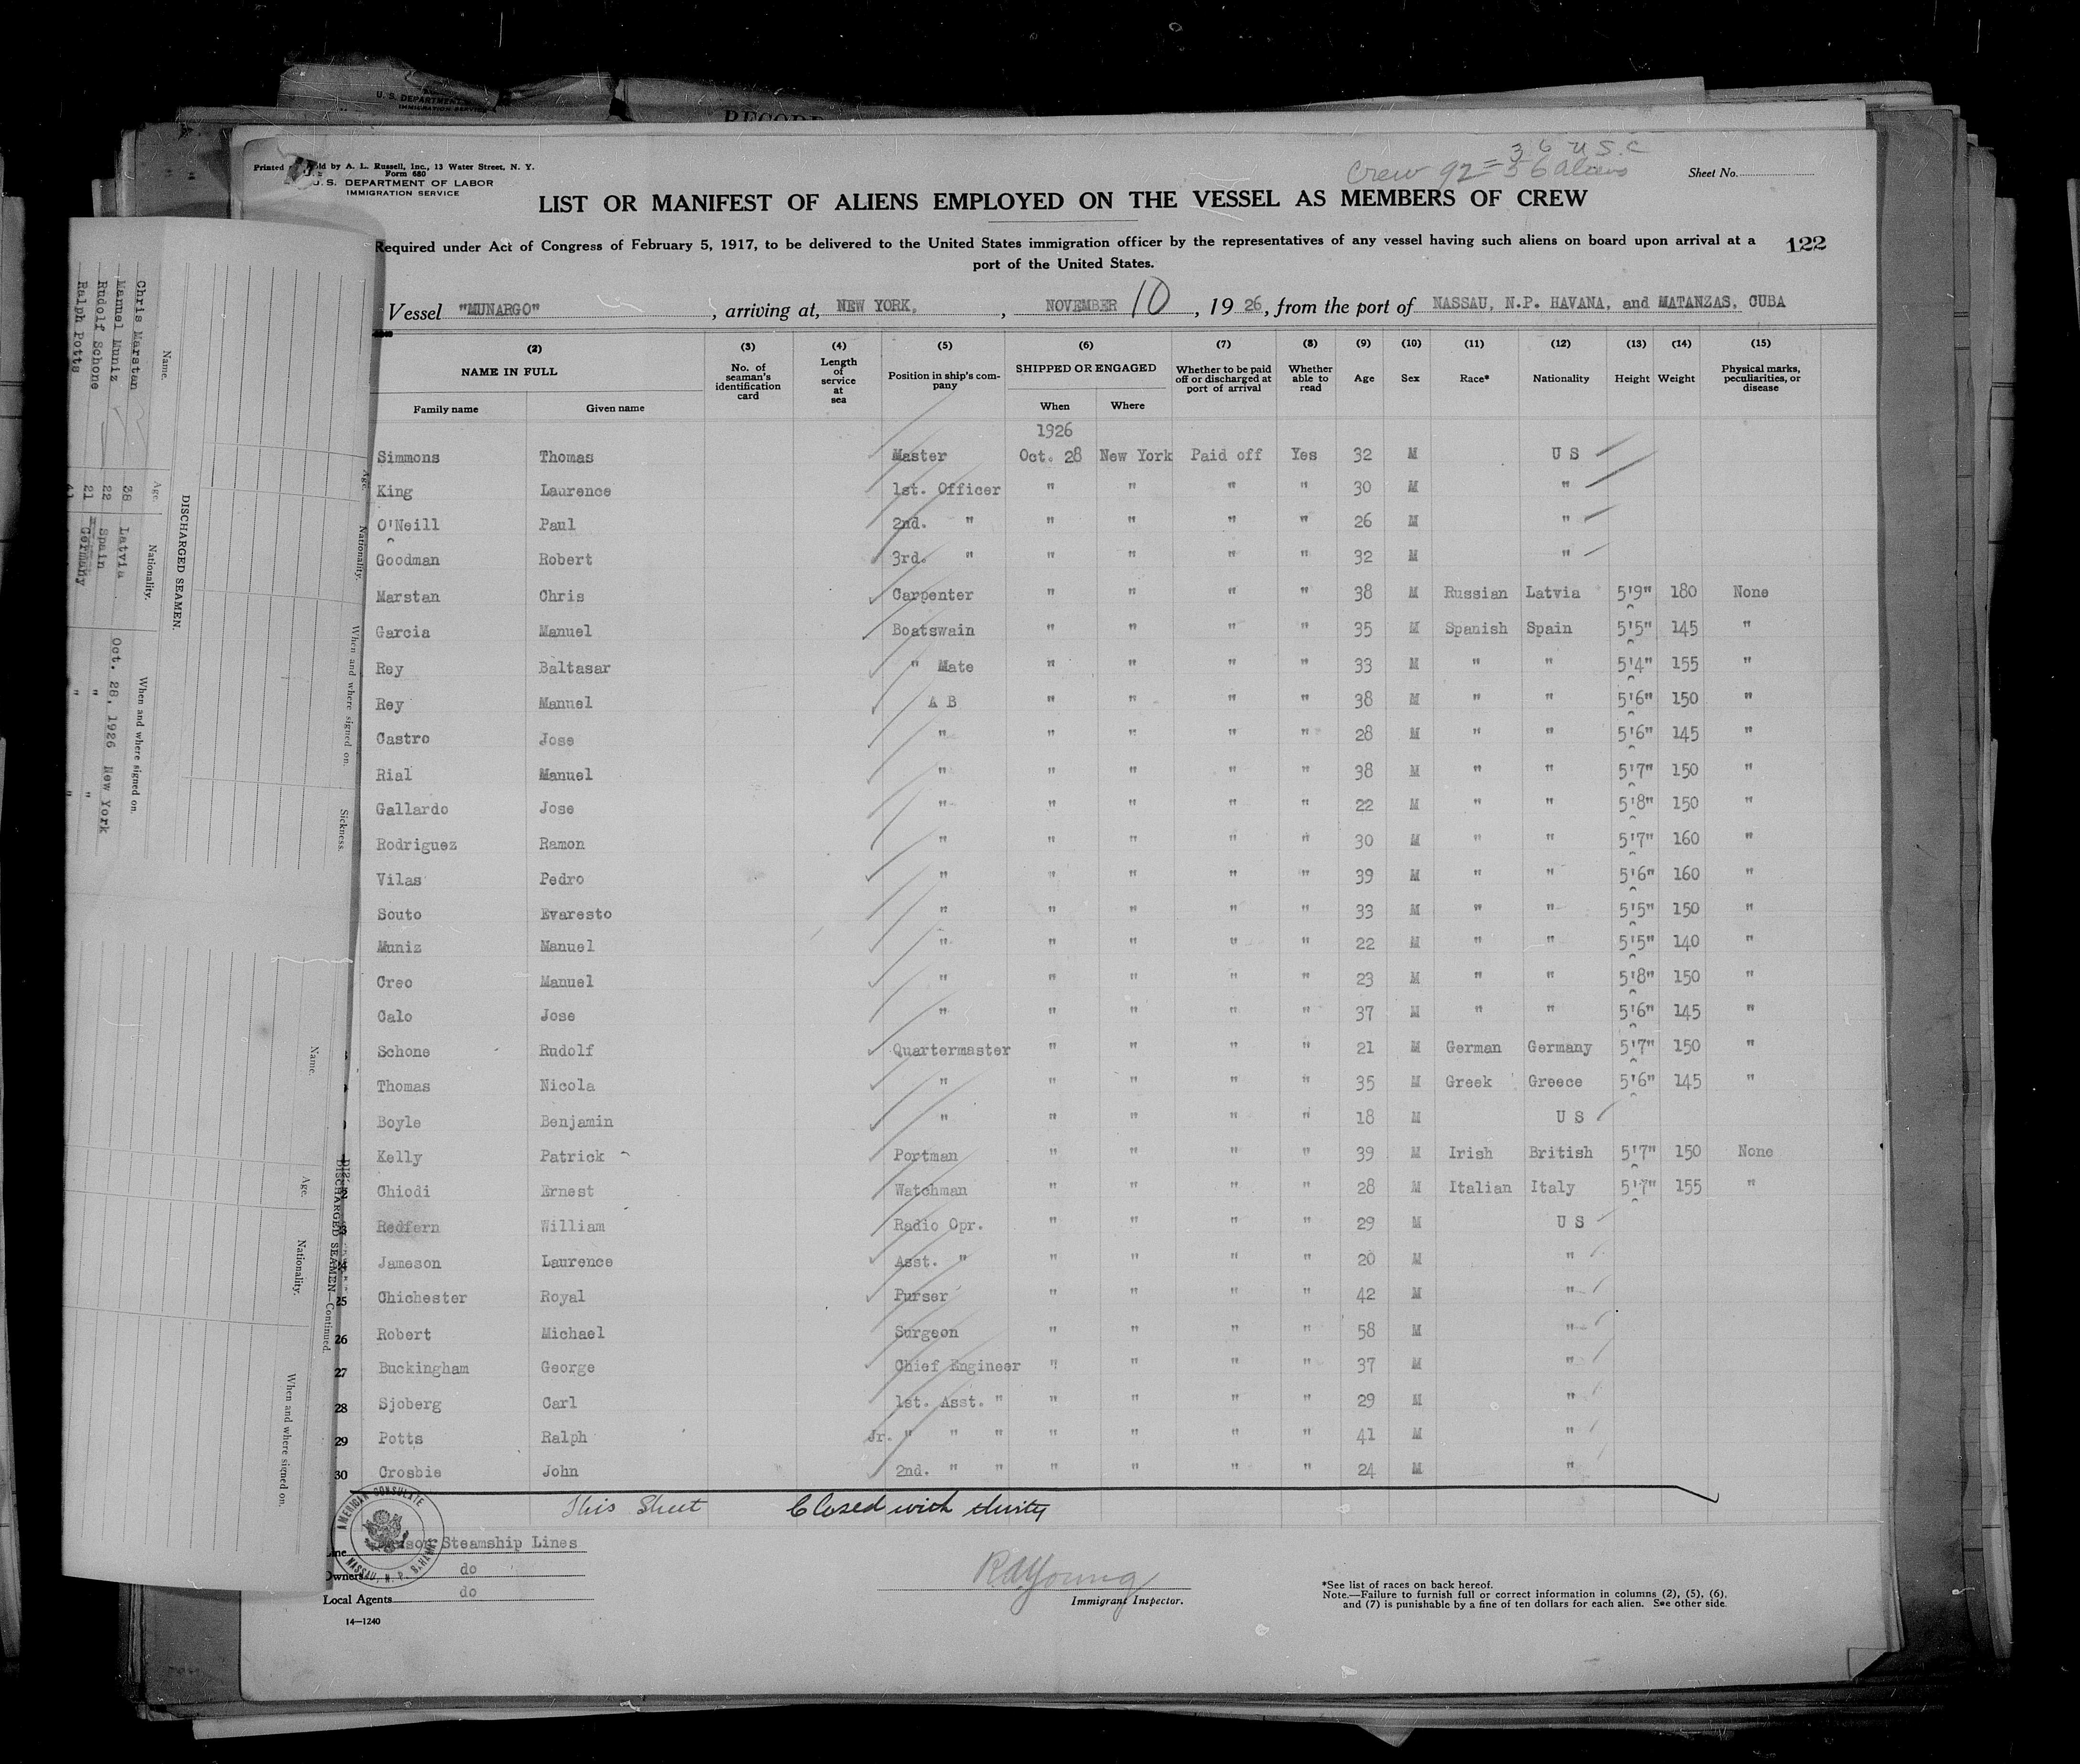 U. S. DEPARTMENT
IMMIGRATION SERVICE
RECORD
Printed by A. L. Russell, Inc., 13 Water Street, N. Y.
Form 680
U. S. DEPARTMENT OF LABOR
IMMIGRATION SERVICE
36 U S. C
Crew 92 = 56 aliens
Sheet No.
LIST OR MANIFEST OF ALIENS EMPLOYED ON THE VESSEL AS MEMBERS OF CREW
Required under Act of Congress of February 5, 1917, to be delivered to the United States immigration officer by the representatives of any vessel having such aliens on board upon arrival at a
port of the United States.
122
Vessel "MUNARGO", arriving at, NEW YORK, NOVEMBER 10, 1926, from the port of NASSAU, N.P. HAVANA, and MATANZAS, CUBA
(2) (3) (4) (5) (6) (7) (8) (9) (10) (11) (12) (13) (14) (15)
NAME IN FULL No. of seaman's identification card Length of service at sea Position in ship's company SHIPPED OR ENGAGED Whether to be paid off or discharged at port of arrival Whether able to read Age Sex Race* Nationality Height Weight Physical marks, peculiarities, or disease
Family name Given name When Where
1926
Simmons Thomas Master Oct. 28 New York Paid off Yes 32 M U S
King Laurence 1st. Officer " " " " 30 M "
O'Neill Paul 2nd. " " " " " 26 M "
Goodman Robert 3rd. " " " " " 32 M "
Marstan Chris Carpenter " " " " 38 M Russian Latvia 5'9" 180 None
Garcia Manuel Boatswain " " " " 35 M Spanish Spain 5'5" 145 "
Rey Baltasar " Mate " " " " 33 M " " 5'4" 155 "
Rey Manuel A B " " " " 38 M " " 5'6" 150 "
Castro Jose " " " " " 28 M " " 5'6" 145 "
Rial Manuel " " " " " 38 M " " 5'7" 150 "
Gallardo Jose " " " " " 22 M " " 5'8" 150 "
Rodriguez Ramon " " " " " 30 M " " 5'7" 160 "
Vilas Pedro " " " " " 39 M " " 5'6" 160 "
Souto Evaresto " " " " " 33 M " " 5'5" 150 "
Muniz Manuel " " " " " 22 M " " 5'5" 140 "
Creo Manuel " " " " " 23 M " " 5'8" 150 "
Calo Jose " " " " " 37 M " " 5'6" 145 "
Schone Rudolf Quartermaster " " " " 21 M German Germany 5'7" 150 "
Thomas Nicola " " " " " 35 M Greek Greece 5'6" 145 "
Boyle Benjamin " " " " " 18 M U S
Kelly Patrick Portman " " " " 39 M Irish British 5'7" 150 None
Chiodi Ernest Watchman " " " " 28 M Italian Italy 5'7" 155 "
Redfern William Radio Opr. " " " " 29 M U S
Jameson Laurence Asst. " " " " " 20 M "
25 Chichester Royal Purser " " " " 42 M "
26 Robert Michael Surgeon " " " " 58 M "
27 Buckingham George Chief Engineer " " " " 37 M "
28 Sjoberg Carl 1st. Asst. " " " " " 29 M "
29 Potts Ralph Jr. " " " " " " " 41 M "
30 Crosbie John 2nd. " " " " " " 24 M "
This Sheet Closed with thirty
AMERICAN CONSULATE
NASSAU, N. P. BAHAMAS
Line Munson Steamship Lines
Owners do
Local Agents do
14—1240
R A Young
Immigrant Inspector.
*See list of races on back hereof.
Note.—Failure to furnish full or correct information in columns (2), (5), (6),
and (7) is punishable by a fine of ten dollars for each alien. See other side.
DISCHARGED SEAMEN.
Name. Age. Nationality. When and where signed on.
Chris Marstan 38 Latvia Oct. 28, 1926 New York
Manuel Muniz 22 Spain " "
Rudolf Schone 21 Germany " "
Ralph Potts 41
Age. Nationality. When and where signed on. Sickness.
DISCHARGED SEAMEN—Continued.
Name. Age. Nationality. When and where signed on.